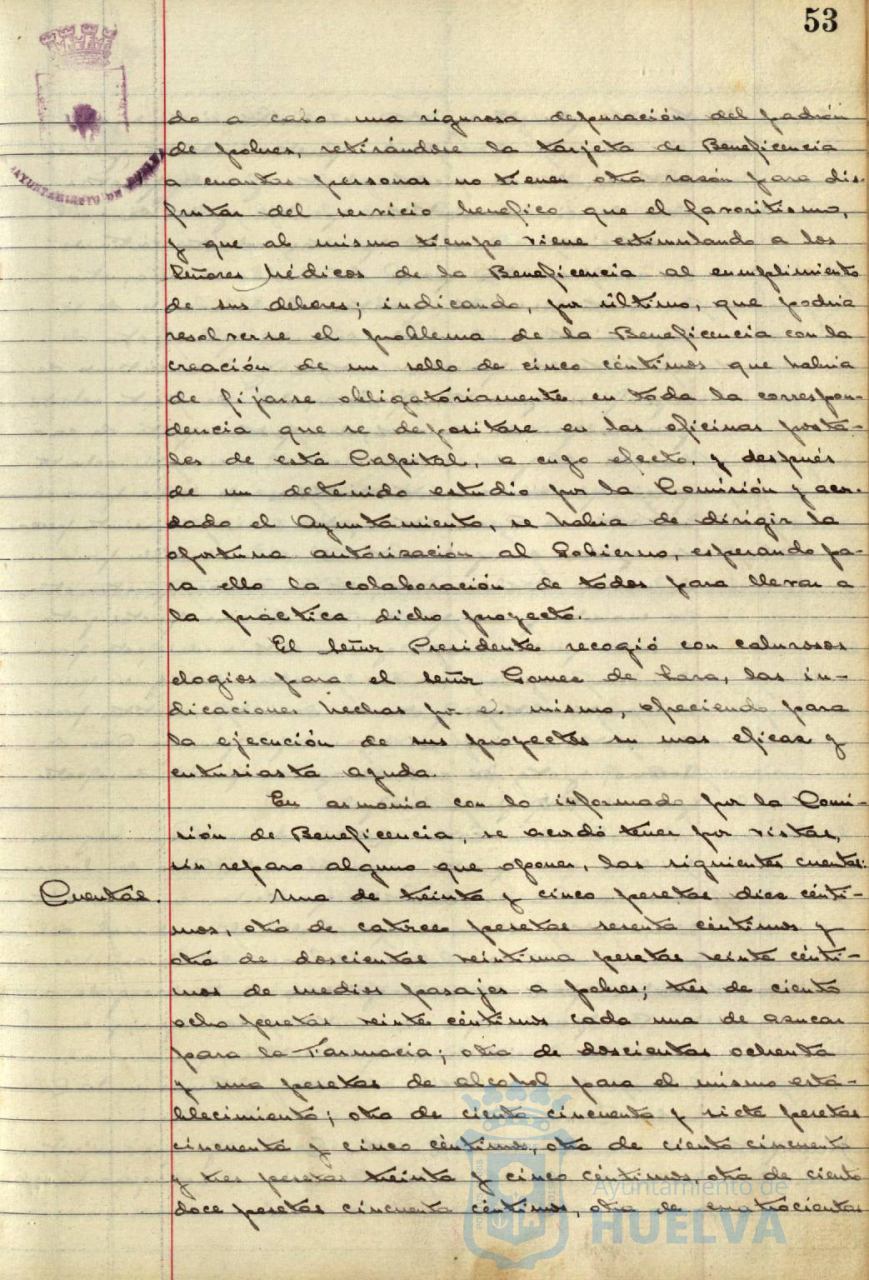 53
AYUNTAMIENTO DE HUELVA
do a cabo una rigurosa depuración del padrón
de pobres, retirándose la tarjeta de Beneficencia
a cuantas personas no tienen otra razón para dis-
frutar del servicio benefico que el favoritismo,
y que al mismo tiempo viene estimulando a los
Señores Médicos de la Beneficencia al cumplimiento
de sus deberes; indicando, por último, que podria
resolverse el problema de la Beneficencia con la
creación de un sello de cinco céntimos que habria
de fijarse obligatoriamente en toda la correspon-
dencia que se depositase en las oficinas posta-
les de esta Capital, a cuyo efecto, y después
de un detenido estudio por la Comisión y acor-
dado el Ayuntamiento, se habia de dirigir la
oportuna autorización al Gobierno, esperando pa-
ra ello la colaboración de todos para llevar a
la práctica dicho proyecto.
El Señor Presidente recogió con calurosos
elogios para el Señor Gomez de Lara, las in-
dicaciones hechas por el mismo, ofreciendo para
la ejecución de sus proyectos su mas eficaz y
entusiasta ayuda.
En armonia con lo informado por la Comi-
sión de Beneficencia, se acordó tener por vistas,
sin reparo alguno que oponer, las siguientes cuentas:
Cuentas. Una de treinta y cinco pesetas diez cénti-
mos, otra de catorce pesetas sesenta céntimos y
otra de doscientas veintiuna pesetas veinte cénti-
mos de medios pasajes a pobres; tres de ciento
ocho pesetas veinte céntimos cada una de azucar
para la Farmacia; otra de doscientas ochenta
y una pesetas de alcohol para el mismo esta-
blecimiento; otra de ciento cincuenta y siete pesetas
cincuenta y cinco céntimos, otra de ciento cincuenta
y tres pesetas treinta y cinco céntimos, otra de ciento
doce pesetas cincuenta céntimos, otra de cuatrocientas
Ayuntamiento de
HUELVA